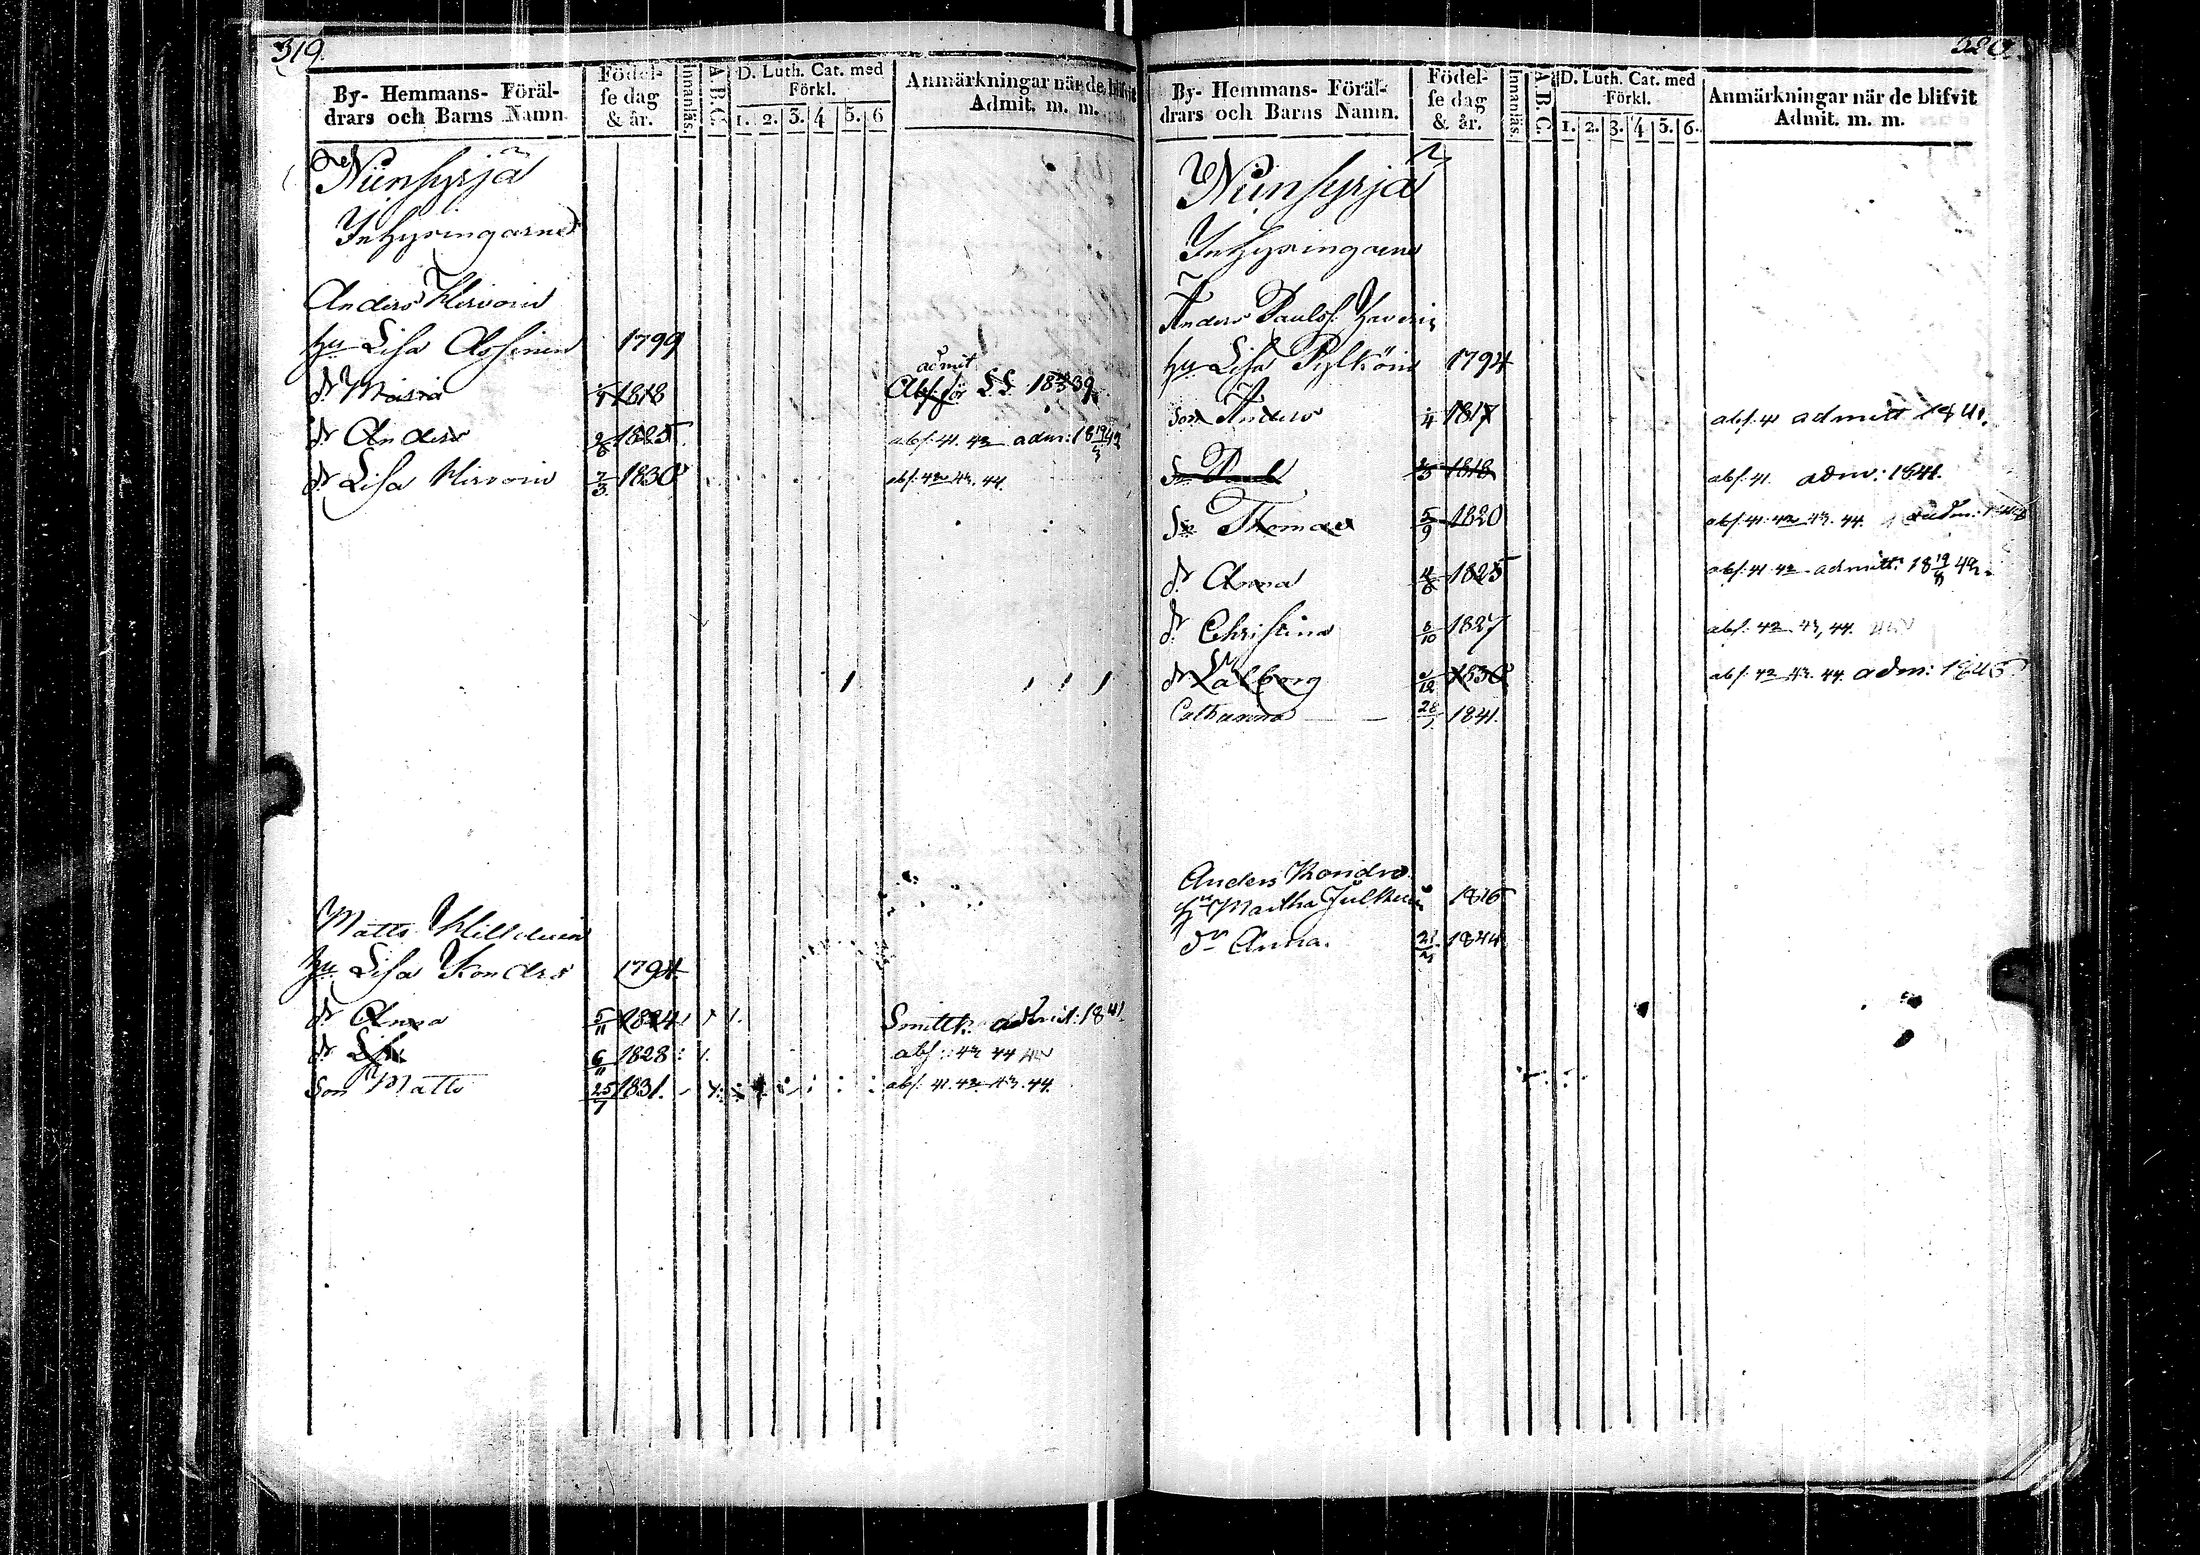 319.
By- Hemmans- Föräl-
drars och Barns Namn.
Födel-
se dag
& år.
Innanläs.
A.B.C.
D. Luth. Cat. med
Förkl.
1. 2. 3. 4 5. 6
Anmärkningar när de blifvit
Admit. m. m.
Niinsyrjä
Inhysingarne
Anders Hirvoin
hu Lisa Assinin 1799
dr Maria 1818 admit
Abs. för LL 1839
dr Anders 2/8 1825 abs. 41. 42 adm: 18 19/3 42
dr Lisa Hirvoin 7/3 1830 abs. 42 43. 44.
Matts
hu Lisa Kondro 1794
dr Anna 5/11 1824 Smittk. admit: 1841
dr Lisa 6/11 1828 abs: 43 44
Son Matts 25/7 1831. abs. 41. 42 43. 44.
320.
By- Hemmans- Föräl-
drars och Barns Namn.
Födel-
se dag
& år.
Innanläs.
A.B.C.
D. Luth. Cat. med
Förkl.
1. 2. 3. 4 5. 6.
Anmärkningar när de blifvit
Admit. m. m.
Niinsyrjä
Inhysingarne
Anders Paulss.
hu Lisa Pylköin 1794
Son Anders 1/4 1817 abs. 41 admitt 1841.
Sn Paul 1818 abs. 41. adm: 1841.
Sn Thomas 5/9 1820 abs. 41. 42 43. 44.
dr Anna 4/8 1825 abs. 41 42 admitt: 18 19/8 43.
dr Christina 6/10 1827 abs. 42 43, 44.
dr Valborg 1830 abs. 42 43. 44. adm: 1845
Catharina 28/1 1841.
Anders Kondro.
hu Martha Julkuin 1816
dr Anna. 1844